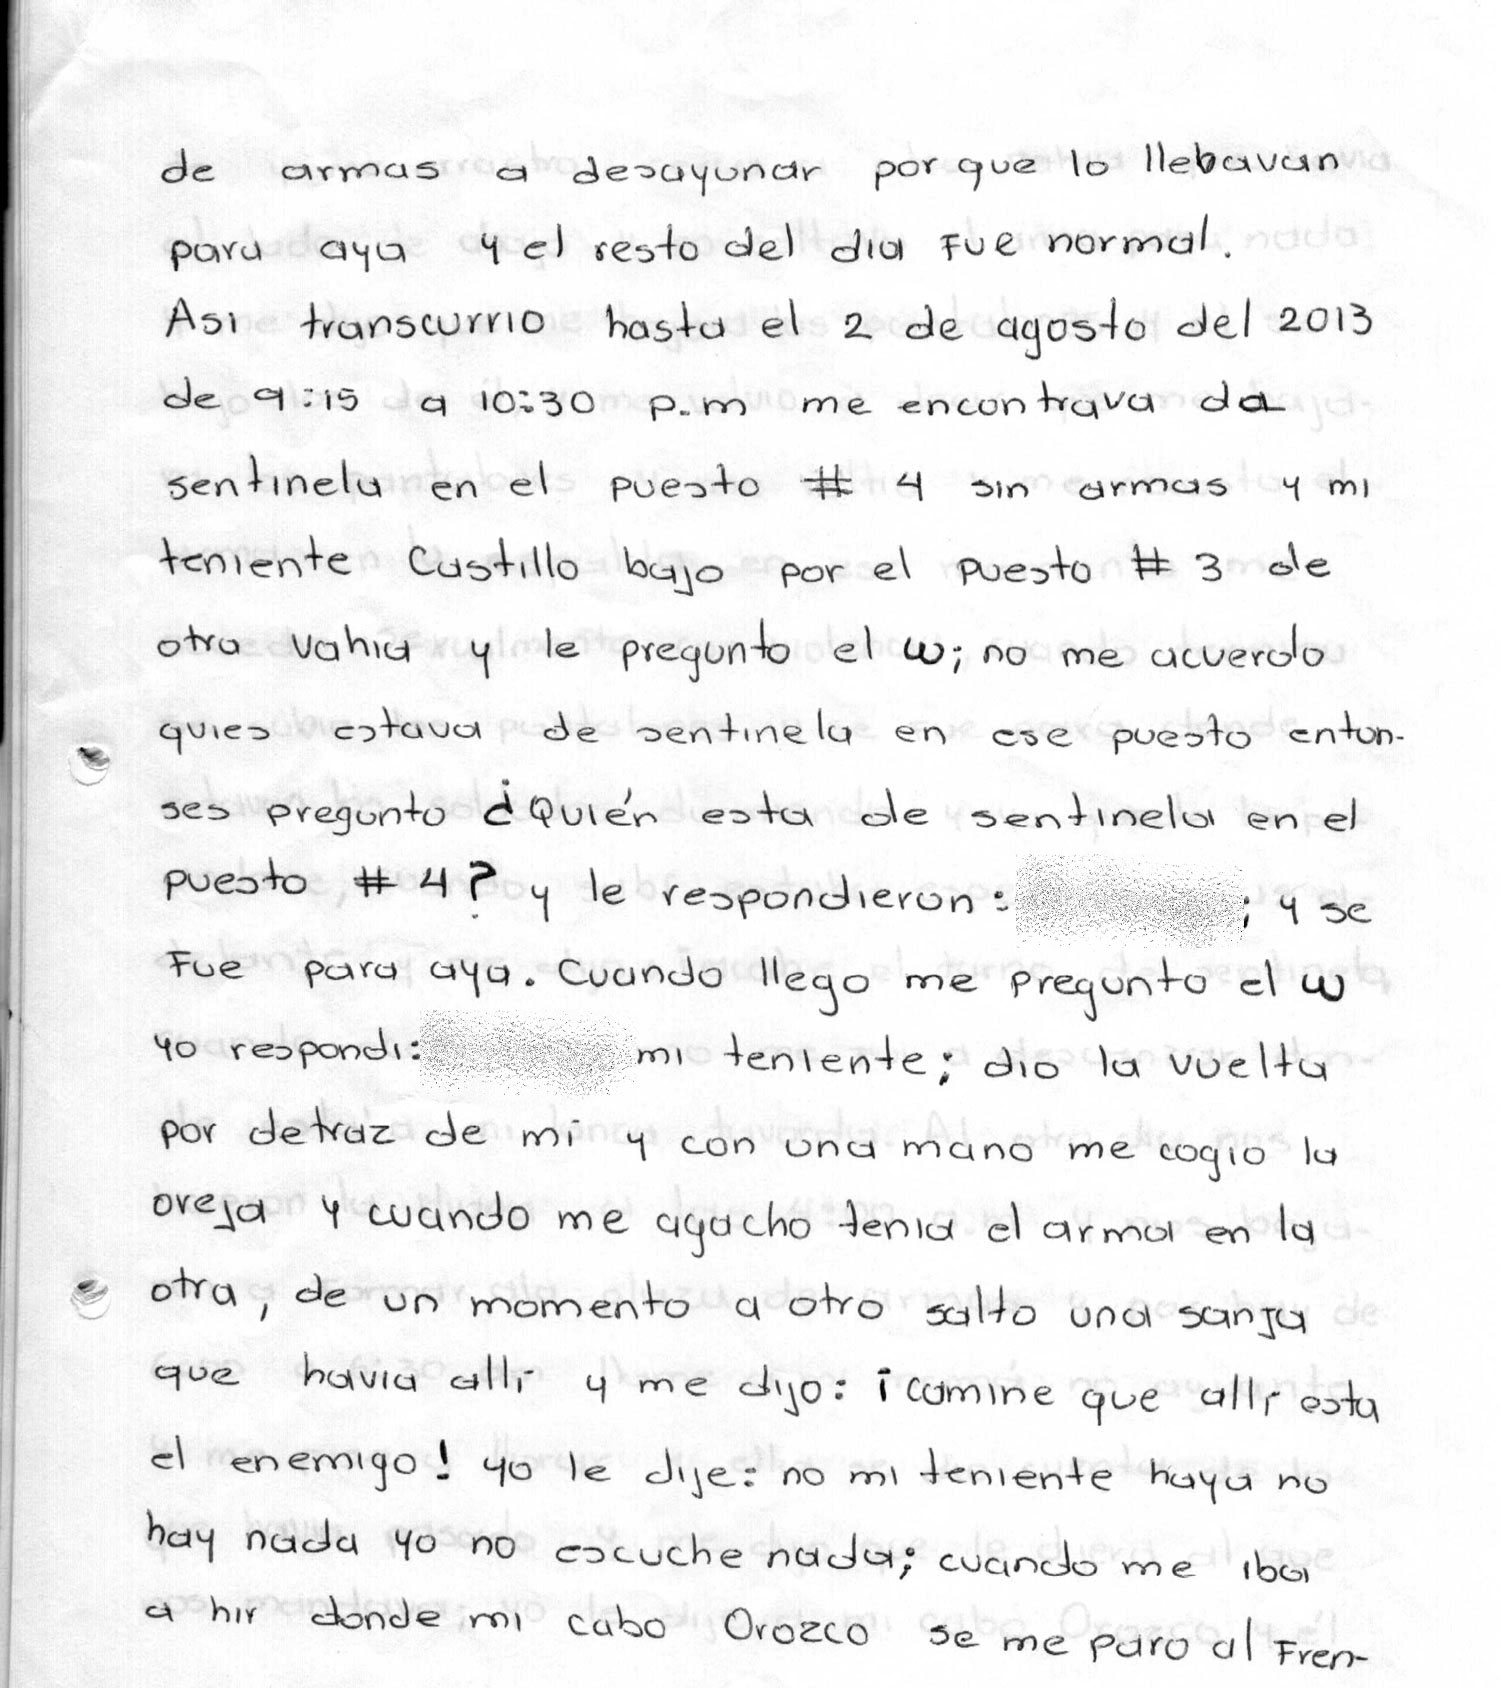 de armas a desayunar por que lo llebavan
para aya y el resto del dia Fue normal.
Asi transcurrio hasta el 2 de agosto del 2013
de 9:15 a 10:30 p.m me encontrava da
sentinela en el puesto # 4 sin armas y mi
teniente Castillo bajo por el puesto # 3 de
otra vahia y le pregunto el w; no me acuerdo
quies estava de sentinela en ese puesto enton-
ses pregunto ¿Quién esta de sentinela en el
puesto # 4? y le respondieron: ; y se
Fue para aya. Cuando llego me pregunto el w
yo respondi: mi teniente; dio la vuelta
por detraz de mi y con una mano me cogio la
oreja y cuando me agacho tenia el arma en la
otra, de un momento a otro salto una sanja
que havia alli y me dijo: ¡camine que alli esta
el enemigo! yo le dije: no mi teniente haya no
hay nada yo no escuche nada; cuando me iba
a hir donde mi cabo Orozco se me paro al Fren-